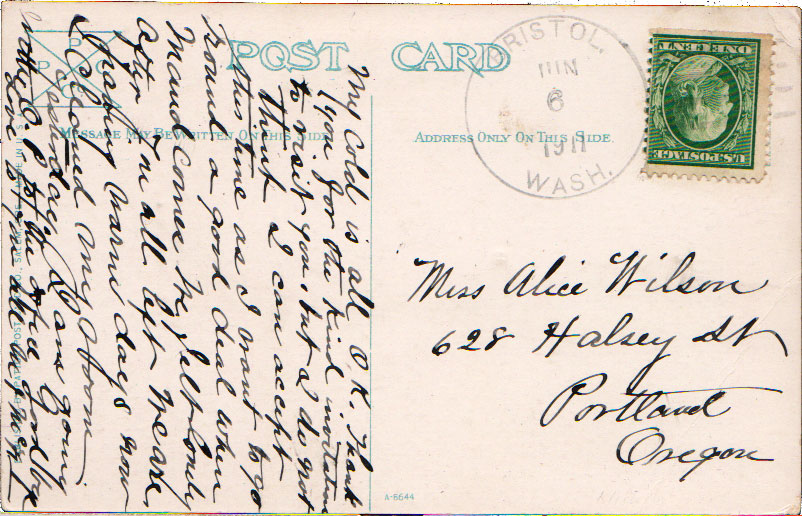 POST CARD
MESSAGE MAY BE WRITTEN ON THIS SIDE
ADDRESS ONLY ON THIS SIDE
BRISTOL,
JUN
6
1911
WASH.
U.S. POSTAGE
ONE CENT
My cold is all O.K. Thank
you for the kind invitation
to visit you, but I do not
think I can accept
this time as I want to go
round a good deal when
Maud comes. My felt lonely
after you all left. We are
having warm days now
I cleaned my room
yesterday. Am going
to the P.O. Good bye
Love to you all
Miss Alice Wilson
628 Halsey St
Portland
Oregon
A-6644